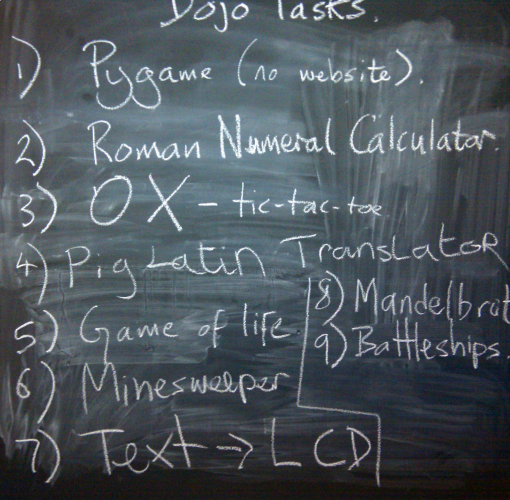 Dojo Tasks.
1) Pygame (no website).
2) Roman Numeral Calculator.
3) OX - tic-tac-toe
4) Pig Latin Translator
5) Game of life
6) Minesweeper
7) Text -> LCD
8) Mandelbrot
9) Battleships.